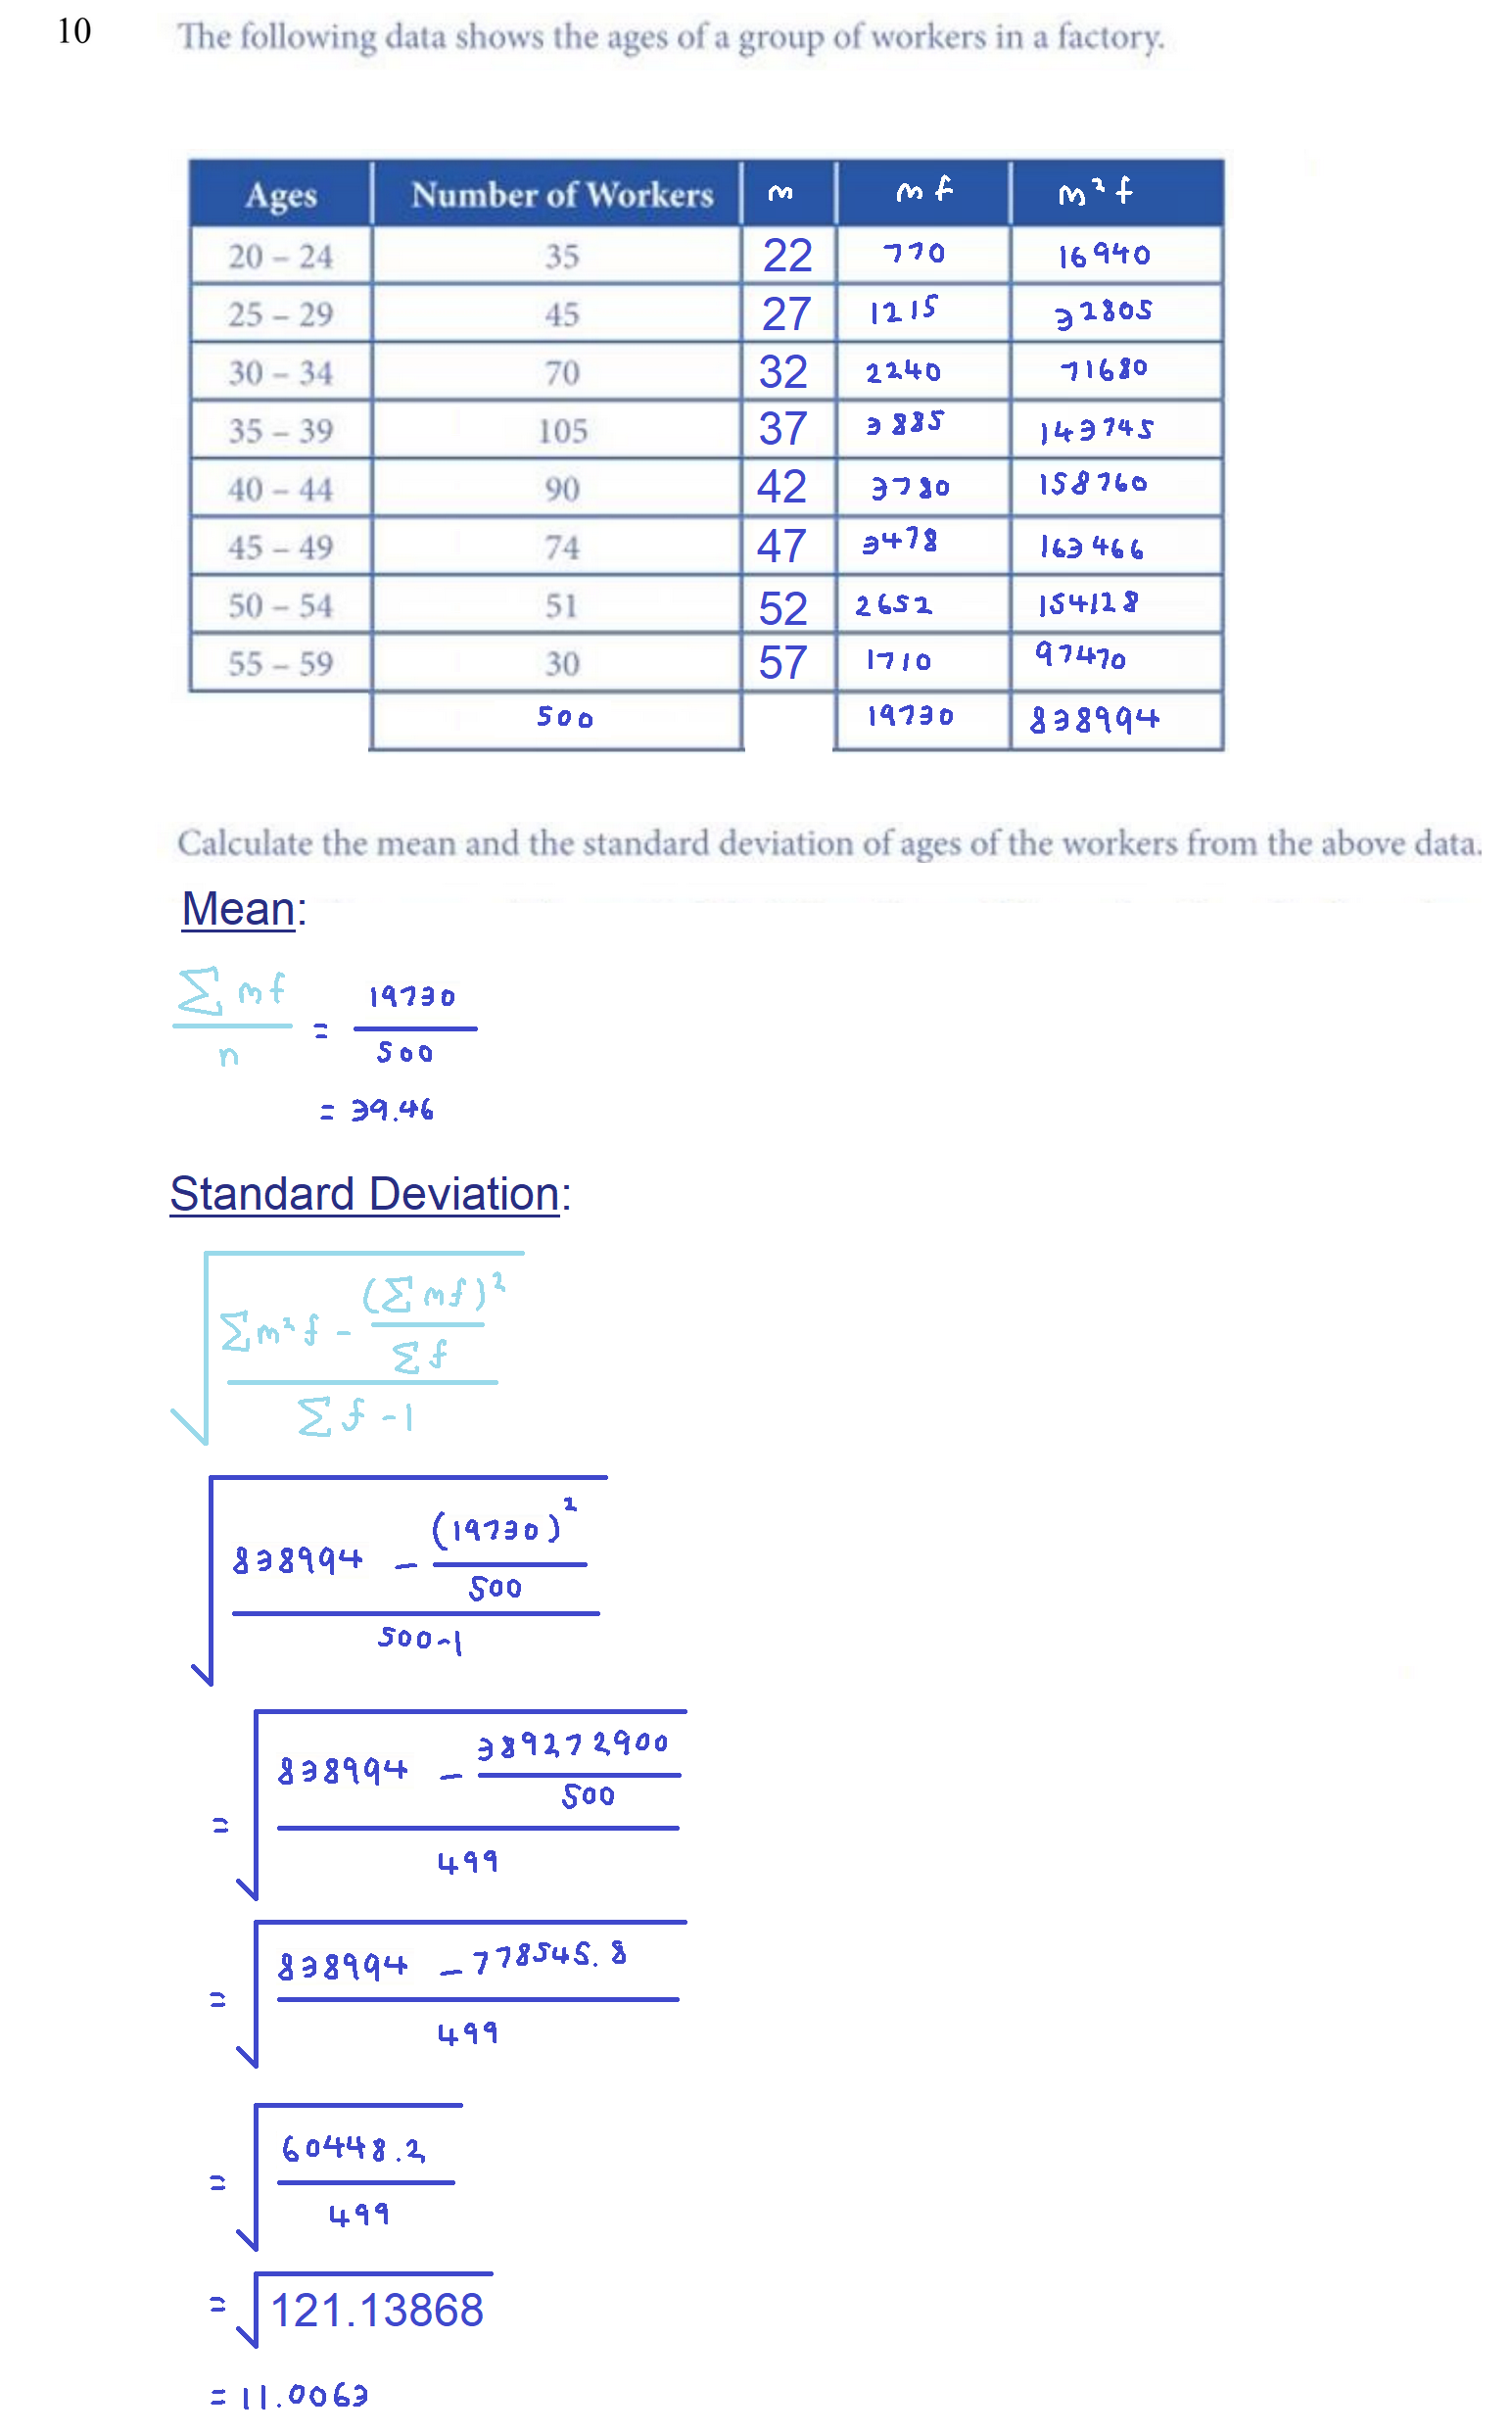 10 The following data shows the ages of a group of workers in a factory.
Ages Number of Workers m mf m²f
20 – 24 35 22 770 16940
25 – 29 45 27 1215 32805
30 – 34 70 32 2240 71680
35 – 39 105 37 3885 143745
40 – 44 90 42 3780 158760
45 – 49 74 47 3478 163466
50 – 54 51 52 2652 154128
55 – 59 30 57 1710 97470
500 19730 838994
Calculate the mean and the standard deviation of ages of the workers from the above data.
Mean:
∑mf
19730
=
n
500
= 39.46
Standard Deviation:
(∑mf)²
∑m²f –
∑f
∑f – 1
(19730)²
838994 –
500
500-1
389272900
838994 –
500
=
499
838994 – 778545.8
=
499
60448.2
=
499
= √121.13868
= 11.0063